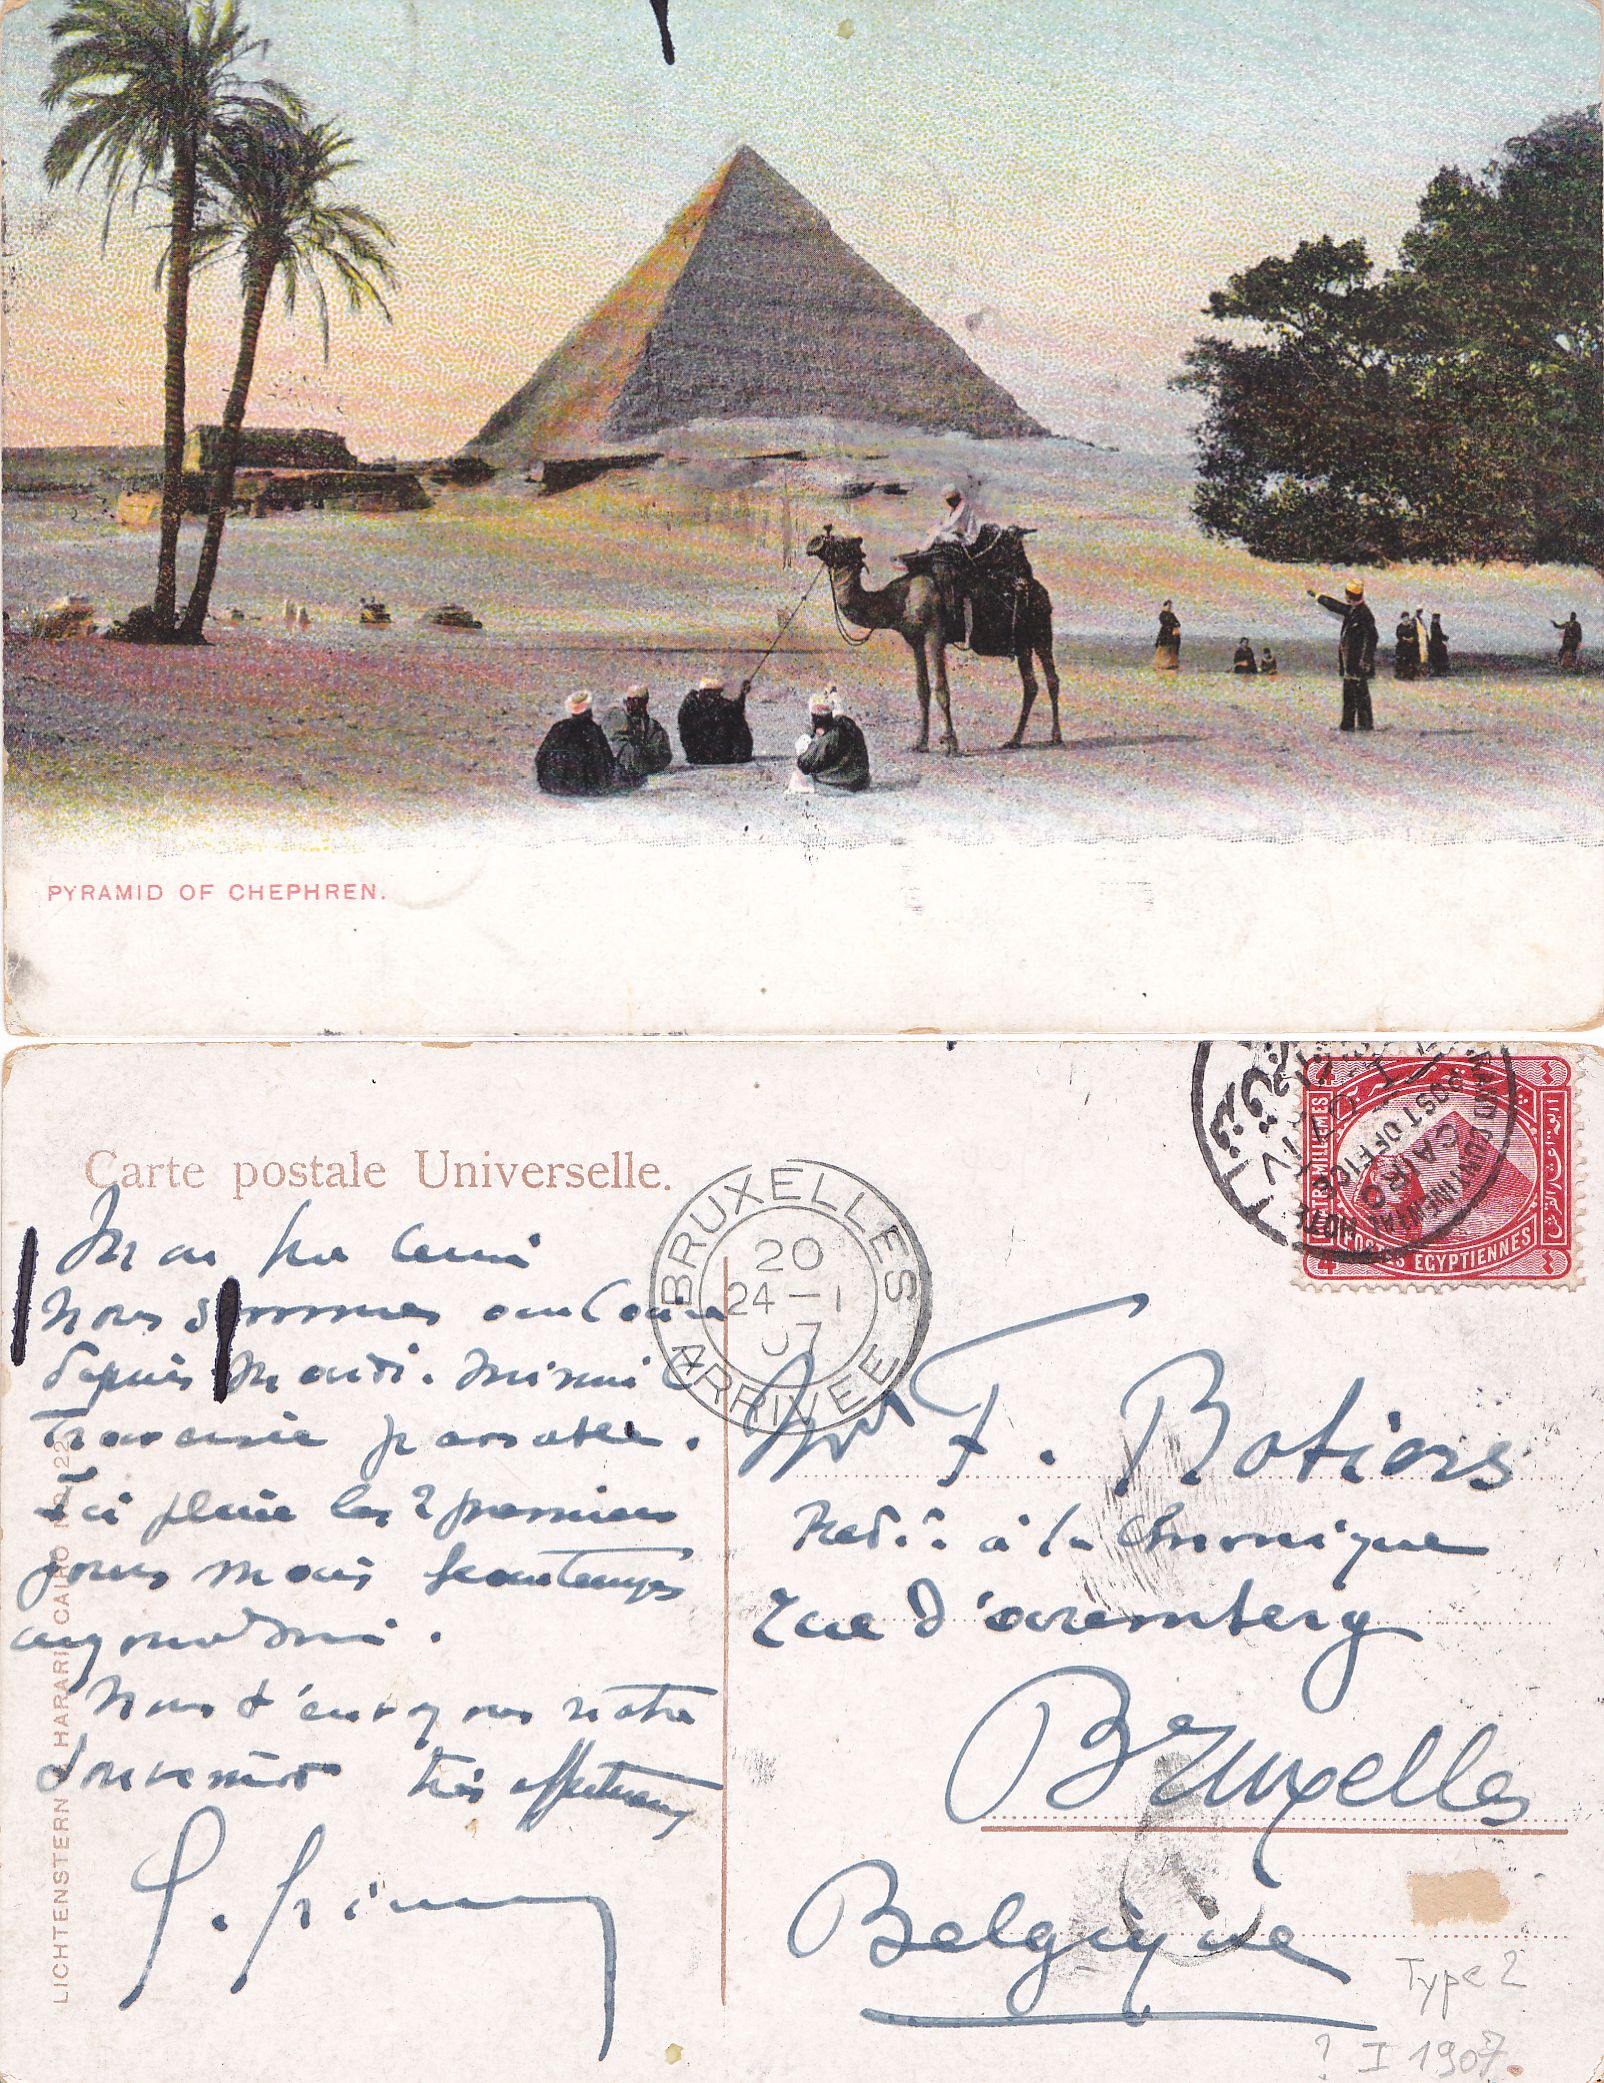 PYRAMID OF CHEPHREN.
Carte postale Universelle.
BRUXELLES
20
24-1
07
ARRIVEE
GRAND CONTINENTAL HOTEL
POST OFFICE
CAIRO
4
QUATRE MILLIEMES
POSTES EGYPTIENNES
Mon
Nous sommes au Caire
depuis Mardi.
Traversée passable.
Ici pluie les 2 premiers
jours mais printemps
aujourd'hui.
Nous t'envoyons notre
souvenir très affectueux
Mr F. Rotiers
Réd.: à la Chronique
Rue d'aremberg
Bruxelles
Belgique
LICHTENSTERN & HARARI CAIRO No 22
Type 2
? I 1907.